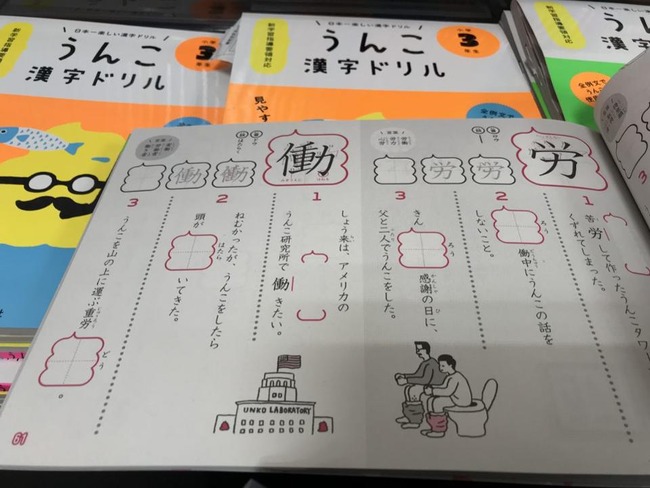 日本一楽しい漢字ドリル
うんこ
漢字ドリル
小学
3
年生
新学習指導要領対応
日本一楽しい漢字ドリル
うんこ
漢字ドリル
小学
3
年生
新学習指導要領対応
見やす
全例文で
新学習指導要領対応
全例文で
うんこ
労
音
ロウ
労
労
1
苦労して作ったうんこタワー
くずれてしまった。
2
ろう
働中にうんこの話を
しないこと。
3
きん
ろう
感謝の日に、
かんしゃ
ひ
父と二人でうんこをした。
働
音
ドウ
訓
はたらく
働
働
1
しょう来は、アメリカの
うんこ研究所で働きたい。
2
ねむかったが、うんこをしたら
頭が
はたら
いてきた。
3
うんこを山の上に運ぶ重労
どう
。
UNKO LABORATORY
61